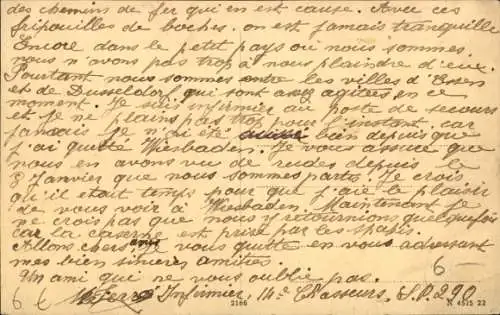 des chemins de fer qui en est cause. Avec ces
fripouilles de boches. on est jamais tranquille
Encore dans le petit pays où nous sommes.
nous n'avons pas trop à nous plaindre d'eux.
Pourtant nous sommes entre les villes d'Essen
et de Dusseldorf qui sont assez agitées en ce
moment. Je suis infirmier au poste de secours
et je ne plains pas trop pour l'instant car
jamais je n'ai été aussi bien depuis que
j'ai quitté Wiesbaden. Je vous assure que
nous en avons vu de rudes depuis le
8 Janvier que nous sommes partis. Je crois
qu'il etait temps pour que j'aie le plaisir
de vous voir à Wiesbaden. Maintenant je
ne crois pas que nous y retournions quelquefois
car la caserne est prise par les spahis.
Allons chers amis je vous quitte en vous adressant
mes bien sincères amitiés.
Un ami qui ne vous oublie pas.
6 -
6
Infirmier, 14e Chasseurs, S.P. 220
2166
N 4515 22